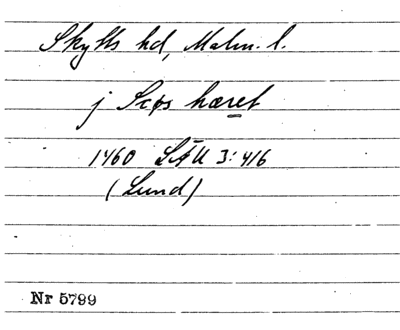 Skytts hd, Malm. l.
j Scøs hæret
1460 SÄU 3:416
(Lund)
Nr 5799